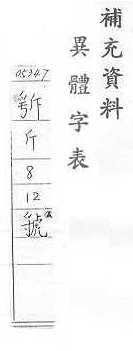 補充資料
異體字表
05347
斤
8
12
號